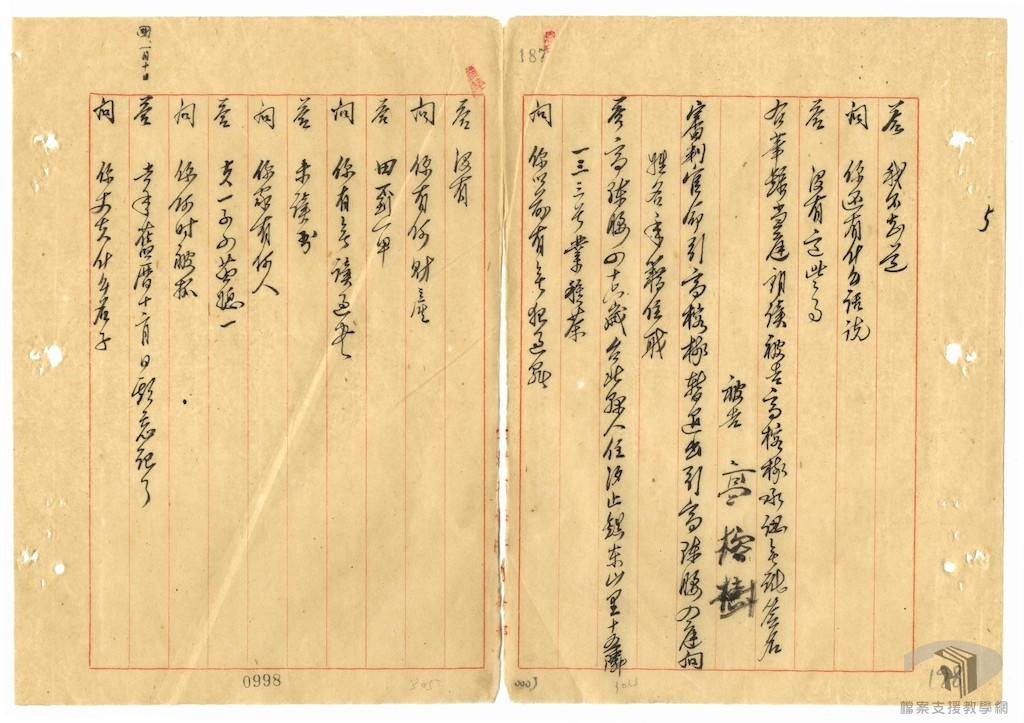 5
187
答 我不知道
問 你還有什么話說
答 沒有這些事
右筆錄當庭朗讀被告高榕樹承認無訛簽名
被告 高榕樹
審判官命引高榕樹暫退出引高陳腰入庭問
姓名年籍住職
答 高陳腰四十六歲台北縣人住汐止鎮東山里十五鄰
一三三號業種茶
問 你以前有無犯過罪
答 沒有
問 你有何財產
答 田到一甲
問 你有無讀過書
答 未讀書
問 你家有何人
答 夫一子
問 你何時被抓
答 去年舊曆十二月日期忘記了
問 你丈夫什么名子
0998
305
198
檔案支援教學網